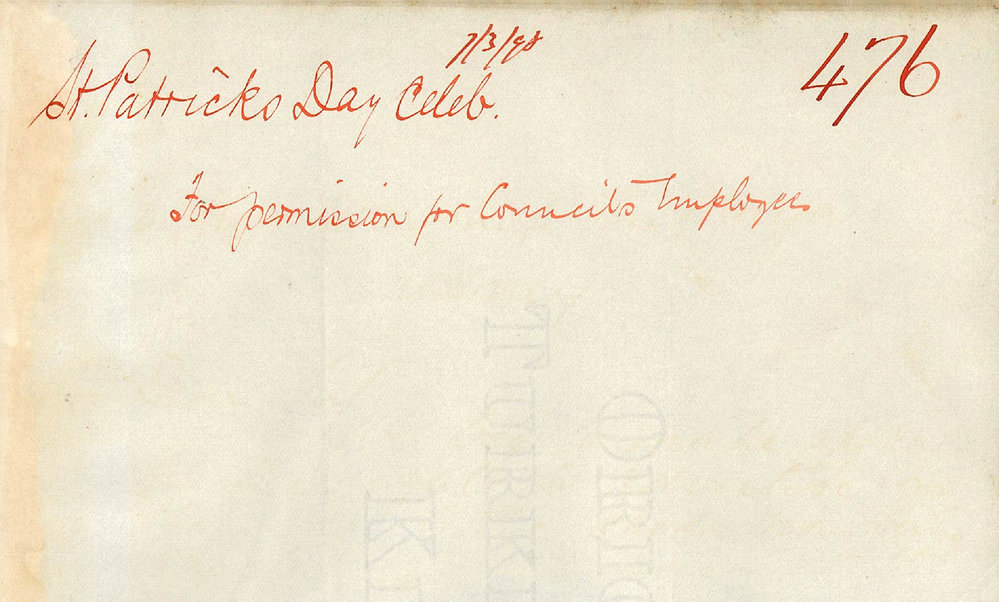 7/3/98
St. Patricks Day Celeb.
476
For permission for Council's Employees